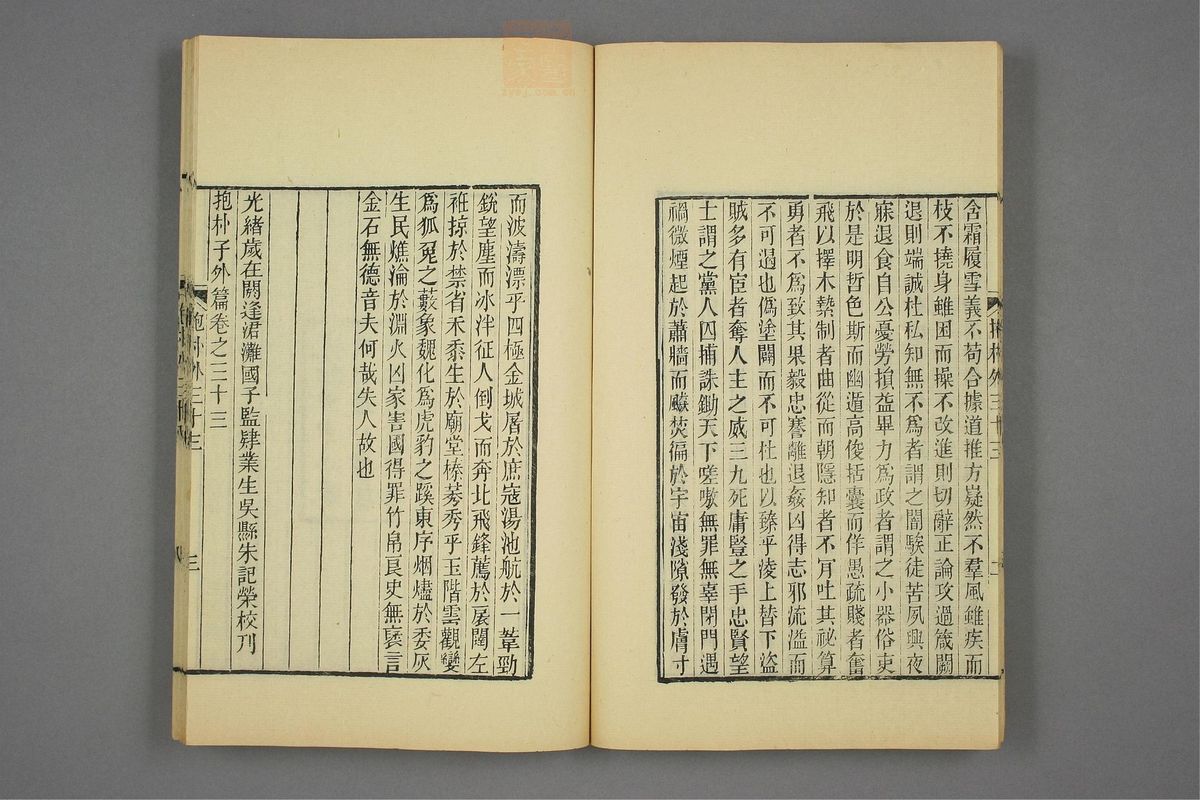 含霜履雪義不苟合據道推方嶷然不羣風雖疾而
枝不撓身雖困而操不改進則切辭正論攻過箴闕
退則端誠杜私知無不爲者謂之闇騃徒苦夙興夜
寐退食自公憂勞損益畢力爲政者謂之小器俗吏
於是明哲色斯而幽遁高俊括囊而佯愚疏賤者奮
飛以擇木縶制者曲從而朝隱知者不肎吐其祕算
勇者不爲致其果毅忠謇離退姦凶得志邪流溢而
不可遏也僞塗闢而不可杜也以臻乎淩上替下盜
賊多有宦者奪人主之威三九死庸豎之手忠賢望
士謂之黨人囚捕誅鋤天下嗟嗷無罪無辜閉門遇
禍微煙起於蕭牆而飇焚徧於宇宙淺隙發於膚寸
而波濤漂乎四極金城屠於庶寇湯池航於一葦勁
銳望塵而冰泮征人倒戈而奔北飛鋒薦於扆闥左
衽掠於禁省禾黍生於廟堂榛莠秀乎玉階雲觀變
爲狐兔之藪象魏化爲虎豹之蹊東序烟燼於委灰
生民燋淪於淵火凶家害國得罪竹帛良史無襃言
金石無德音夫何哉失人故也
光緒歲在閼逢涒灘國子監肄業生吳縣朱記榮校刊
抱朴子外篇卷之三十三
抱朴外三十三
三